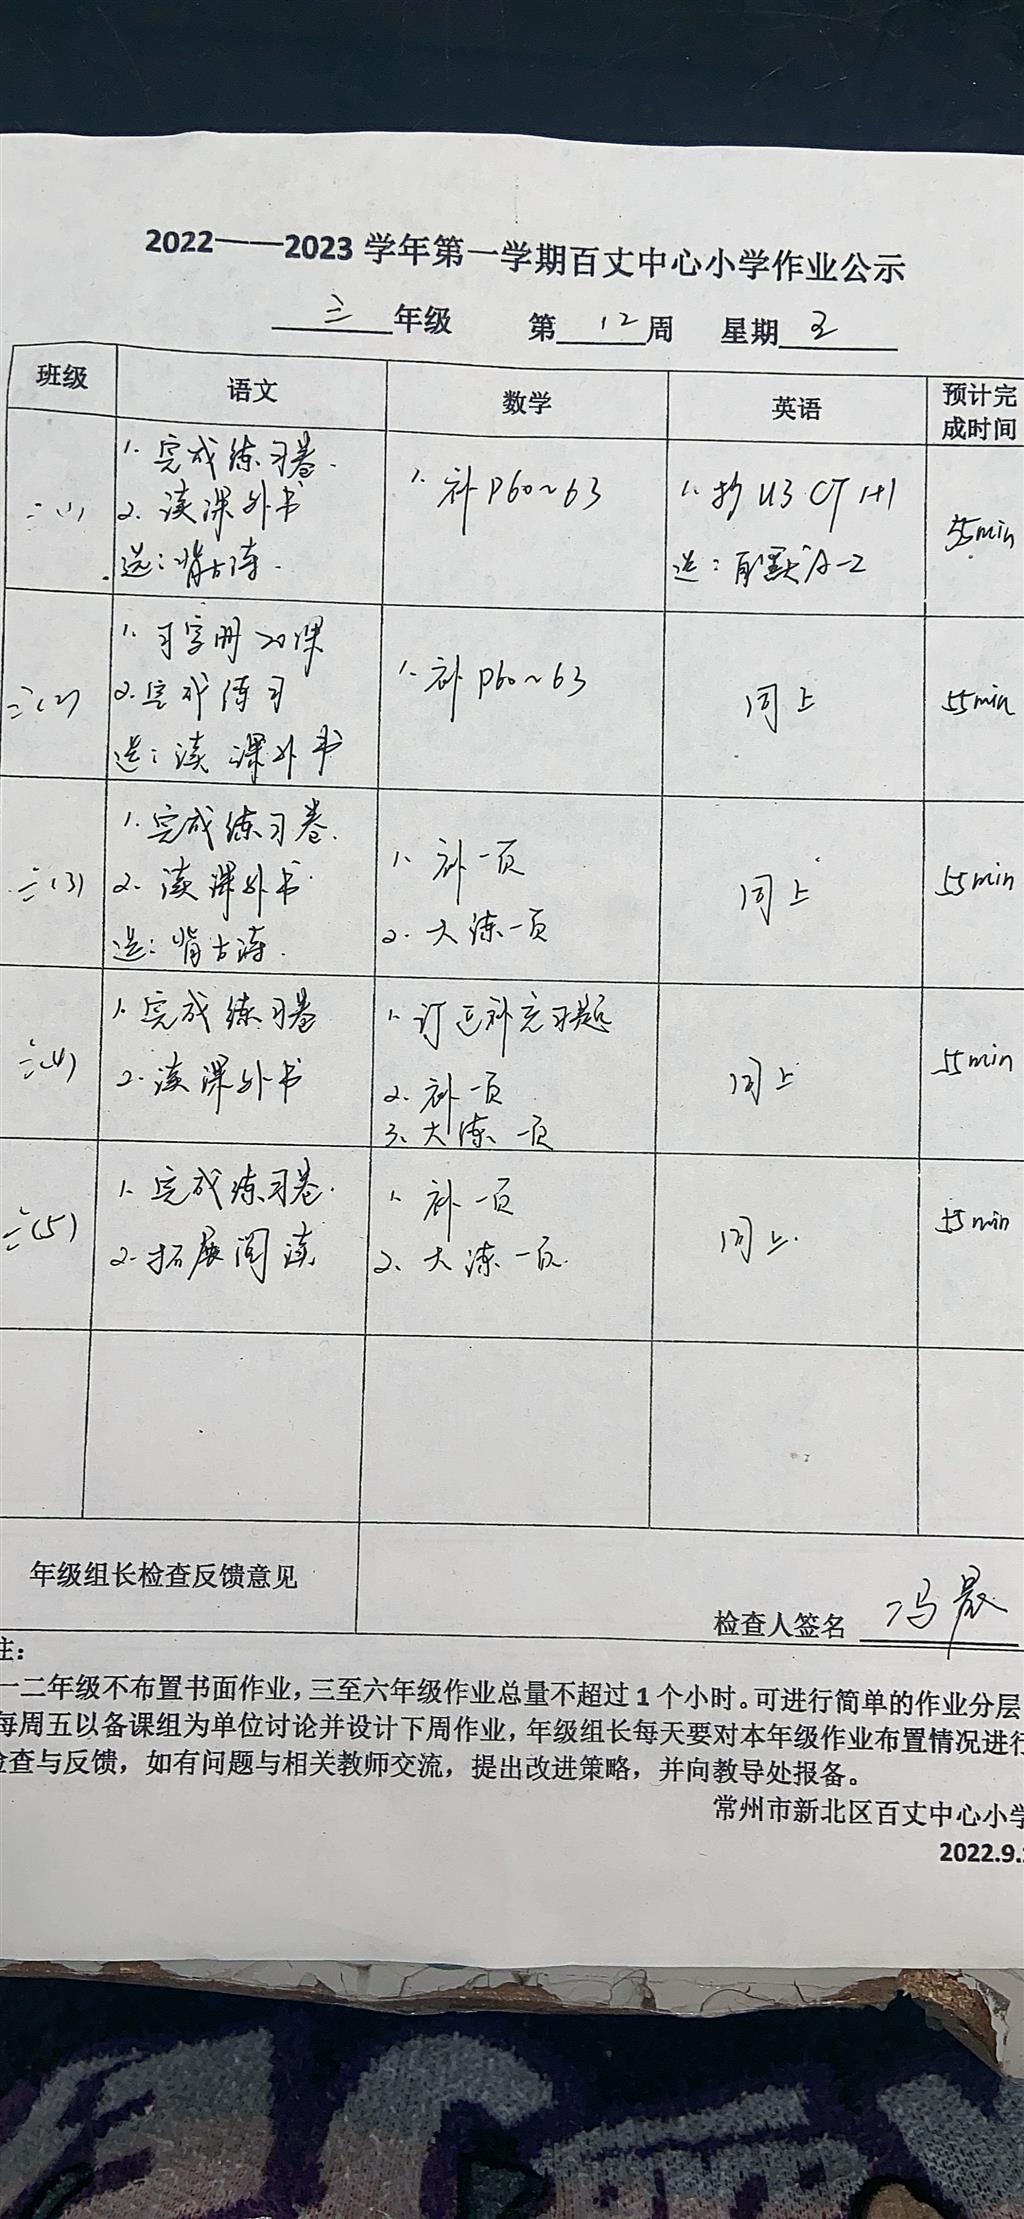 2022——2023 学年第一学期百丈中心小学作业公示
三 年级 第 12 周 星期 五
班级 语文 数学 英语 预计完成时间
三(1)
1. 完成练习卷.
2. 读课外书
选:背古诗.
1. 补P60~63
1. 抄 U3 CT 1+1
选:自默A-Z
55min
三(2)
1. 习字册20课
2. 完成练习
选:读课外书
1. 补P60~63
同上
55min
三(3)
1. 完成练习卷.
2. 读课外书.
选:背古诗.
1. 补一页
2. 大练一页
同上
55min
三(4)
1. 完成练习卷
2. 读课外书
1. 订正补充习题
2. 补一页
3. 大练一页
同上
55min
三(5)
1. 完成练习卷.
2. 拓展阅读
1. 补一页
2. 大练一页.
同上.
55min
年级组长检查反馈意见
检查人签名 冯晨
注:
一二年级不布置书面作业,三至六年级作业总量不超过 1 个小时。可进行简单的作业分层
每周五以备课组为单位讨论并设计下周作业,年级组长每天要对本年级作业布置情况进行
检查与反馈,如有问题与相关教师交流,提出改进策略,并向教导处报备。
常州市新北区百丈中心小学
2022.9.